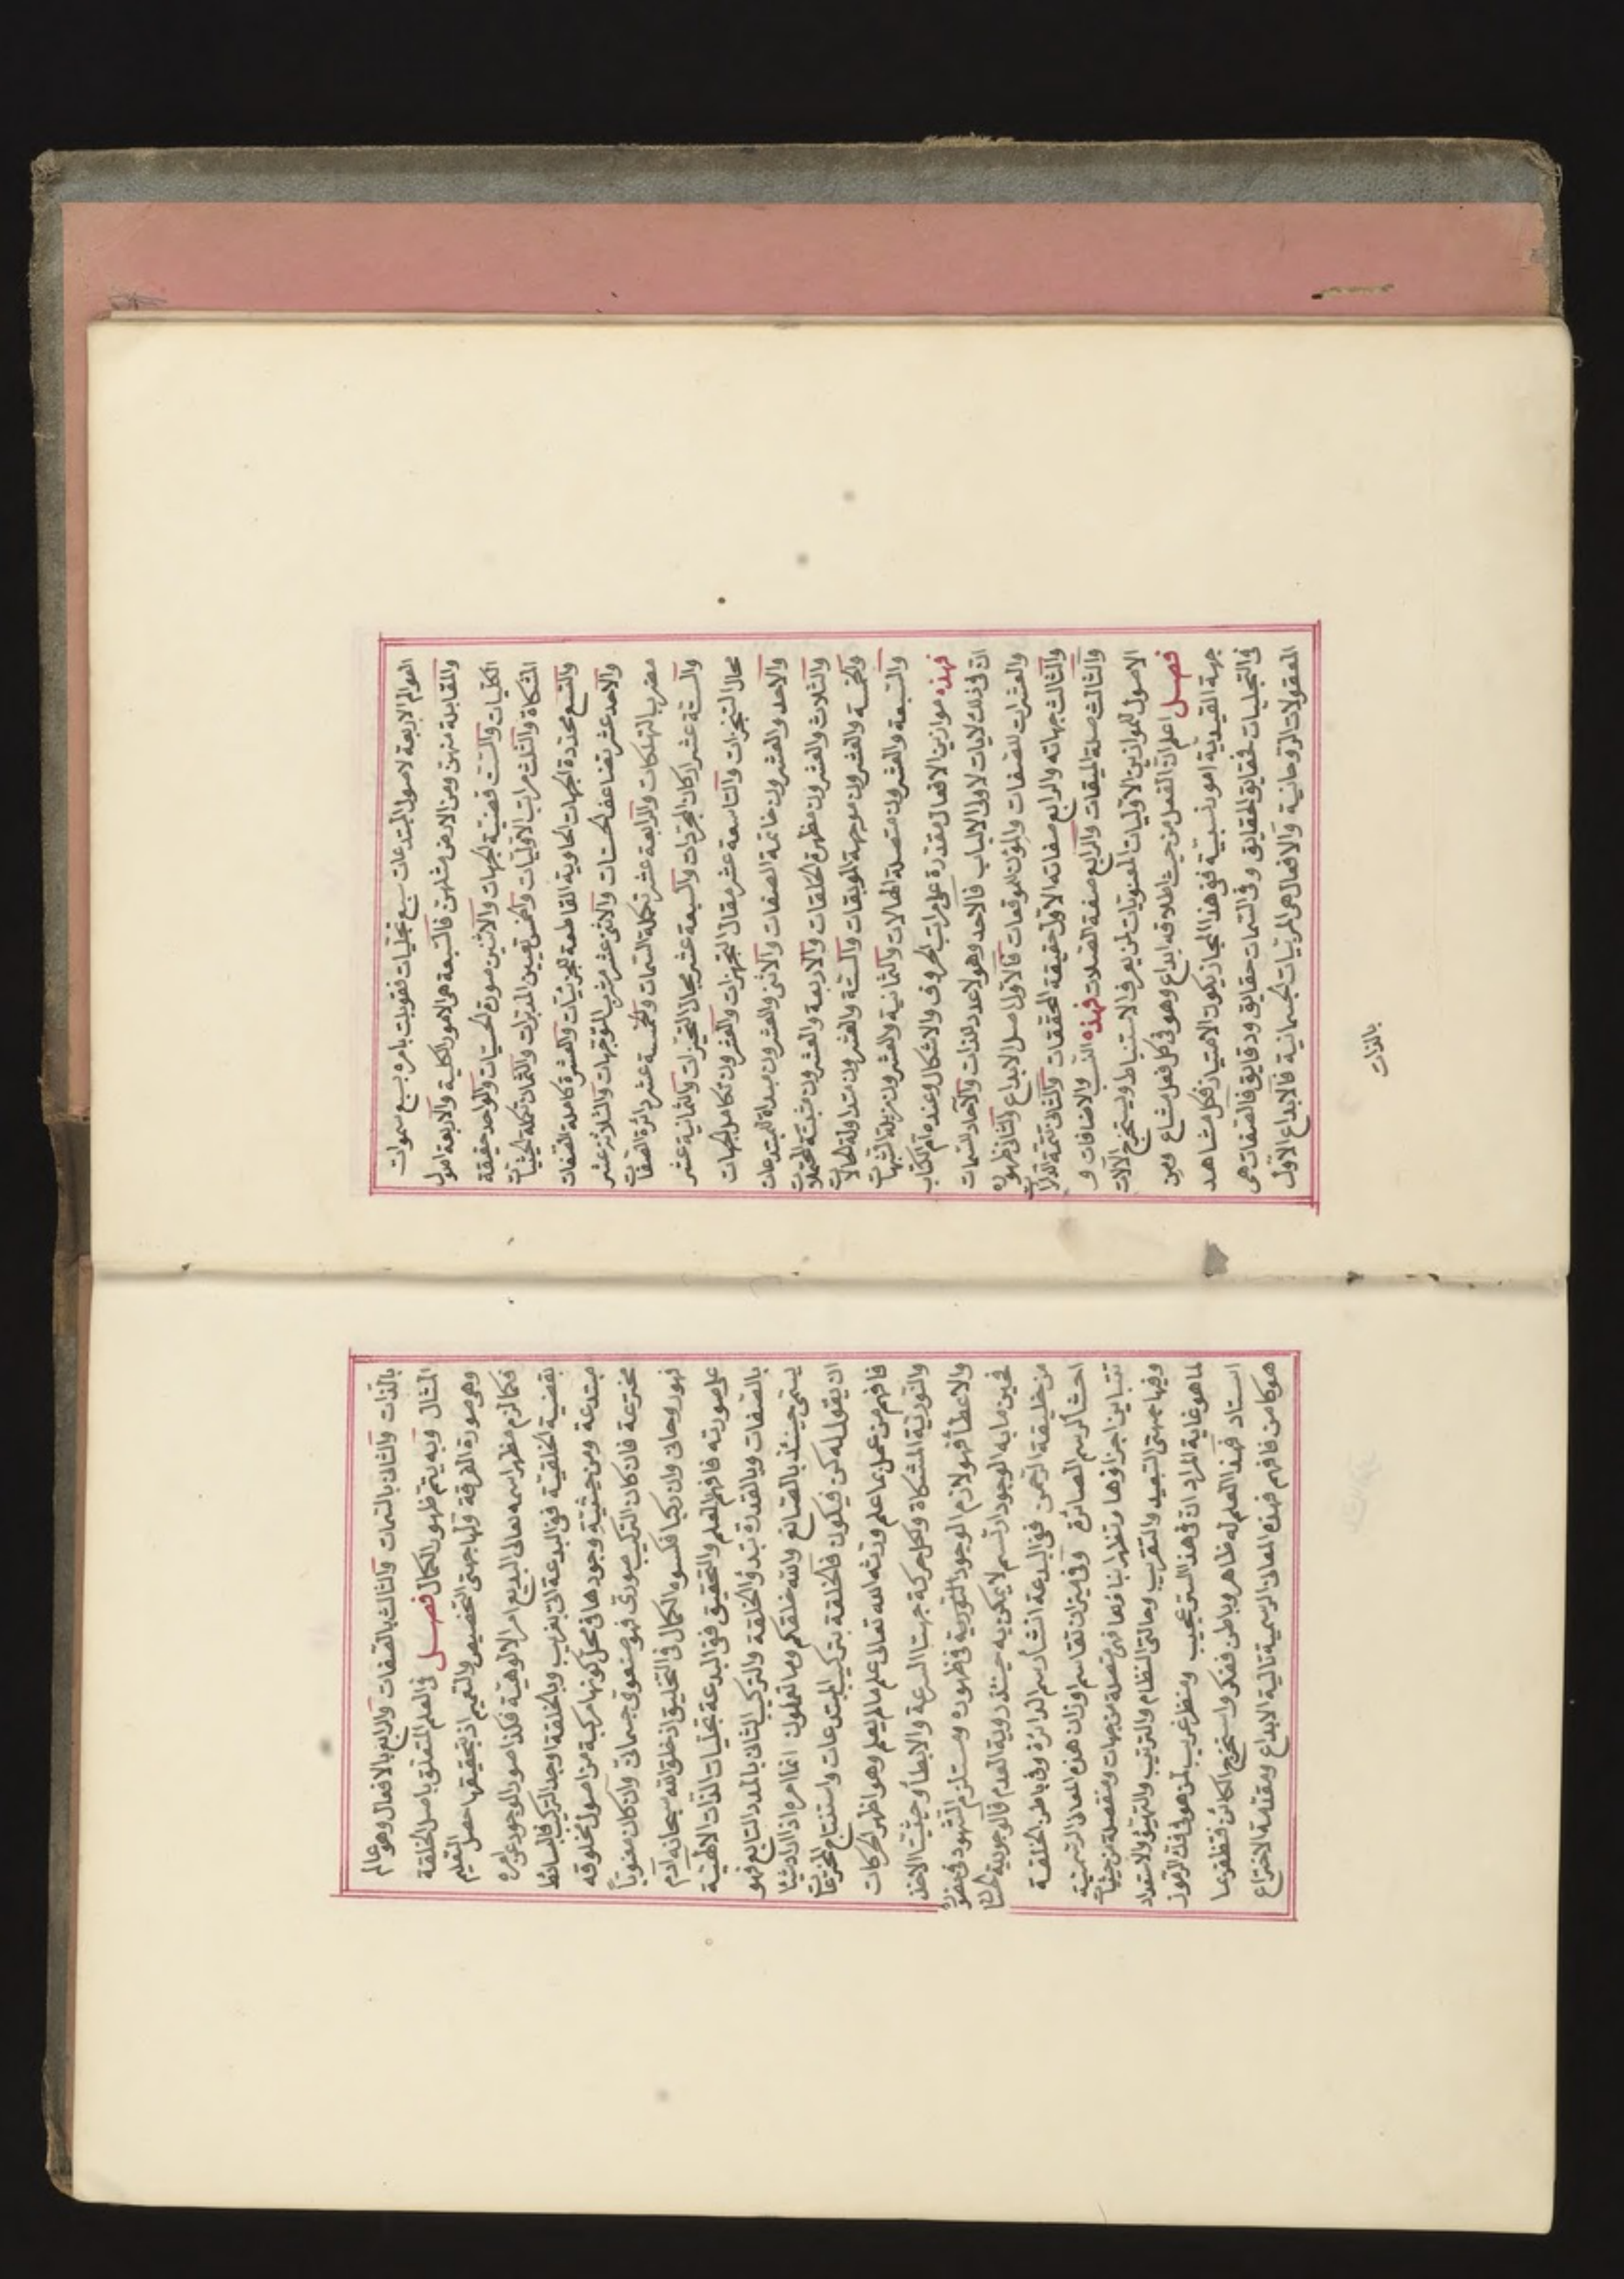 العوالم الاربعة لاصول المبتدعات سبع تجليات نفوبلت بامره بسبع سموات
والمقابلة منهن ومن الارض مثلهن فالسبعة هى الامور الكلية والاربعة اصول
الكليات والست قضية الجهات والاثنين صورة الحسيات والواحد حقيقة
المشكاة والثلث مراتب الاوليات والخمس تعيين المدبرات والثمان تكملة الحيثيات
والتسع محددة الجهات الحاوية القاطعة للجزئيات والعشرة كاملة الصفات
والاحد عشر تضاعف الحسنات والاثنى عشر مشرب المتوجهات والثلاثة عشر
مضرب المهلكات والرابعة عشر تكملة السمات والخمسة عشر دائرة الصفات
والستة عشر اركان المجردات والسبعة عشر مجال التحيزات والثمانية عشر
محال التنجزات والتاسعة عشر مقال التجهزات والعشرون تكامل الجهات
والاحد والعشرون خاتمة الصفات والاثنى والعشرون مبداة المبتدعات
والثلاث والعشرون مظهرة الخلقات والاربعة والعشرون مثبتة المحتملات
والخمسة والعشرون موجهة الموبقات والستة والعشرون متداولة الحالات
والسبعة والعشرون متصلة الهالات والثمانية والعشرون مزيلة الشبهات
فهذه موازين الافعال مقدرة على مراتب الحروف والاشكال وعنده ام الكتاب
ان فى ذلك لايات لاولى الالباب فالاحد وهو لا عدد للذات والآحاد للسمات
والعشرات للصفات والمؤن للموقعات فالاول اصل الابداع والثانى ظهوره
والثالث جهاته والرابع صفاته الاول حقيقة المحققات والثانى تتمة الدلالات
والثالث صلة الميقات والرابع صفة الصلات فهذه النسب والاضافات و
الاصول للموازين الاوليات المعنويات لمن يعرف الاستنباط ويستخرج الآلات
فصل اعلم ان الفعل من حيث اطلاقه ابداع وهو فى كل فعل مشاع ومن
جهة القيدية امور نسبية ففى هذا المجاز يكون الامتياز فكل مشاهد
فى التجليات لحقايق الحقايق وفى السمات حقايق ودقايق فالصفات هى
المعقولات الروحانية والافعال هى المرئيات الجسمانية فالابداع الاول
بالذات
بالذات والثانى بالسمات والثالث بالصفات والرابع بالافعال وهو عالم
المثال وبه يتم ظهور الكمال فصل فى العلم المتعلق باصل الخلقة
وهى صورة الفرقة ولها جهتى التخصيص والتعميم اذ بتحقيقها حصل التقليم
فكما لزم مظهر اسمه تعالى البديع امر الالوهية فكذا صور الوجود عن امره
بقضية الخلقية ففى البدعة التى تغريب وبالخلقة اوجد التركيب فالبسائط
مبتدعة ومن حيثية وجودها فى محل كونها مركبة من اصول مخلوقه
مخترعة فان كان التركيب صورى فهو منعوتى جسمانى وان كان معنويا
فهو روحانى وان ركبا فكسوه الكمال فى التخليق اذ خلق الله سبحانه آدم
على صورته فافهم العلم والتحقيق ففى البدعة تجليات الذات الالهية
بالصفات وبالقدرة تبدؤ الخلقة والتركيب الثانى بالمدد التابع فهو
يسمى حينئذ بالصانع والله خلقكم وما تعملون انما امره اذا اراد شيئا
ان يقول له كن فيكون فالخلقة بتركيب المبتدعات واستنتاج المخترعات
فافهم من عمل بما علم ورثه الله تعالى علم ما لم يعلم وهو اظهر الحركات
والنورية المشكاة ولكل حركة جهتا السرعة والابطأ وحيثيتا الاخذ
والاعطا فهو لازم الوجود النورية فى ظهوره ومستلزم الشهود فى حضوره
فحين ما به الوجود ارتسم لا يمكن به حينئذ روية العدم فالوجودية لها
من خليقة الرحمن ففى البدعة انشأ رسم الدائرة وفى باطن الخلقة
احشا الرسم الصائرة وفى ميزان تقاسم اوزان هذه المعانى الرسمية
تتباين اجزاؤها وتظهر انباؤها فهى متصلة من جهات ومنفصلة من حيثيات
وفيها جهتى التبعيد والتقريب وحالتى النظام والترتيب والتهيؤ والاستعداد
لما هو غاية المراد ان فى هذا السر عجيب ومنظر غريب لمن هو فى فك الرموز
استاد فهذا العلم له ظاهر وباطن ففكر واستخرج الكائن فتظفر بما
هو كامن فافهم فهذه المعانى الرسمية تالية الابداع ومقدمة الاختراع